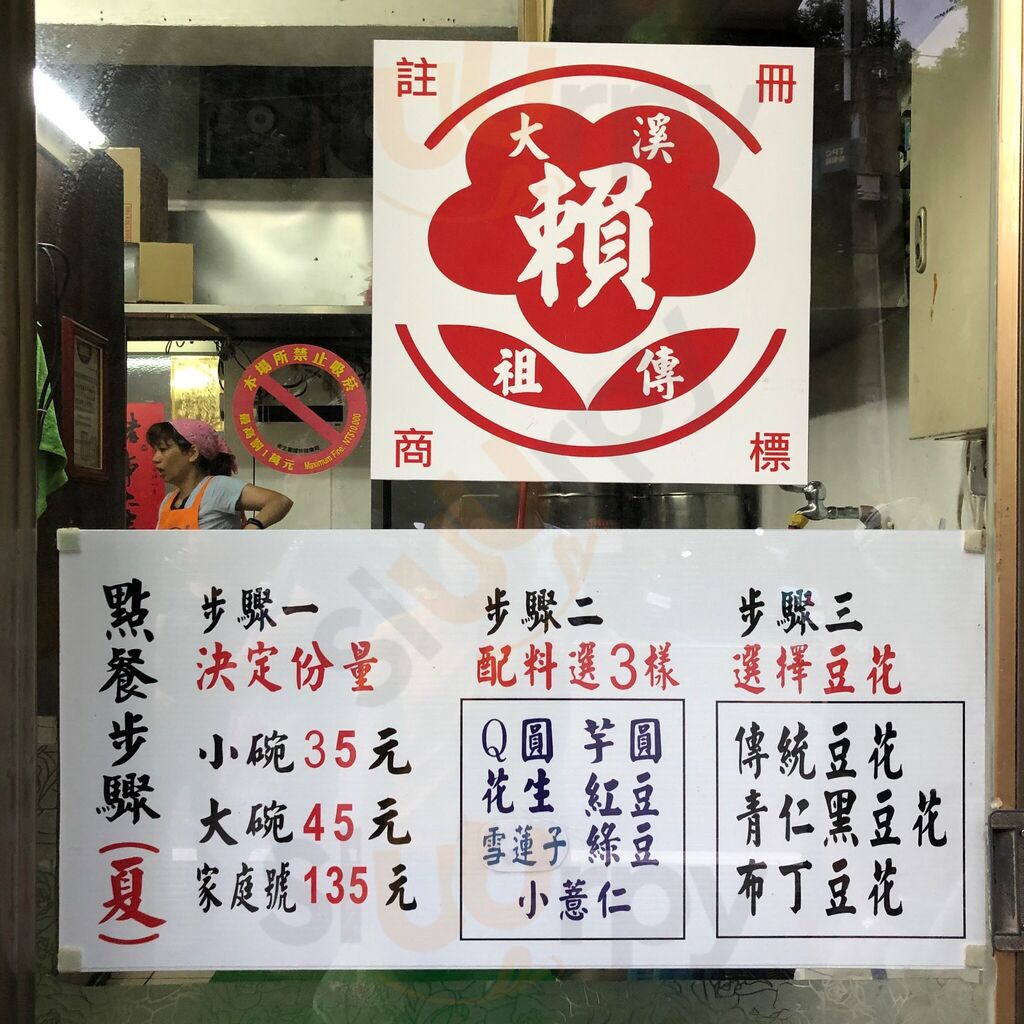 註 冊
大 溪
賴
祖 傳
商 標
本場所禁止吸菸
最高罰1萬元 Maximum Fine NT$10,000
點餐步驟(夏)
步驟一
決定份量
小碗35元
大碗45元
家庭號135元
步驟二
配料選3樣
Q圓 芋圓
花生 紅豆
雪蓮子 綠豆
小薏仁
步驟三
選擇豆花
傳統豆花
青仁黑豆花
布丁豆花
slurpy
slurpy
slurpy